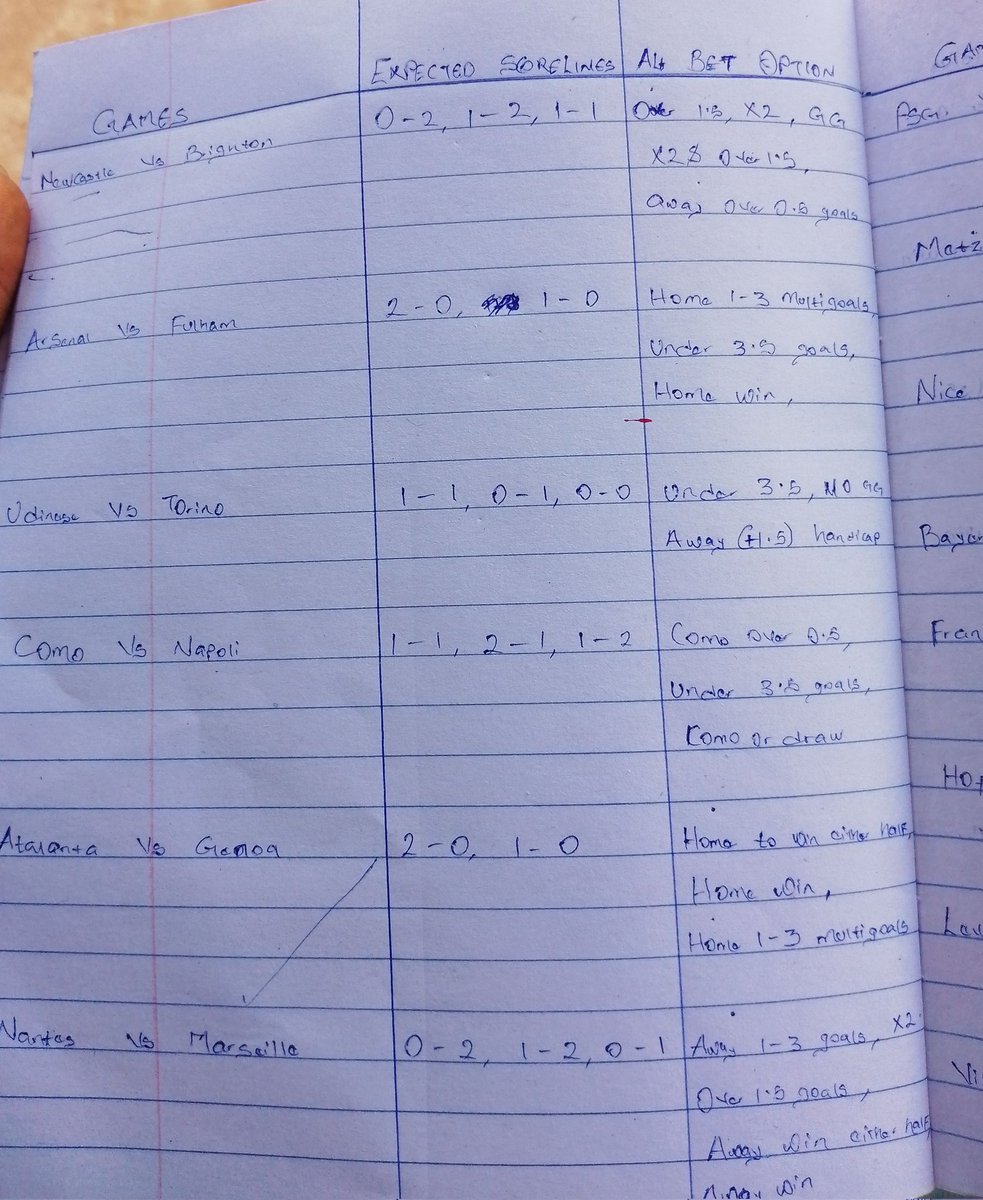 EXPECTED SCORELINES Alt BET OPTION
GAMES
0-2, 1-2, 1-1 Over 1.5, X2, GG
Newcastle Vs Brighton
X2 & Over 1.5,
Away Over 0.5 goals
2-0, 1-0 Home 1-3 Multigoals,
Arsenal Vs Fulham
Under 3.5 goals,
Home win,
Udinese VS Torino 1-1, 0-1, 0-0 Under 3.5, NO GG
Away (+1.5) handicap
Como Vs Napoli 1-1, 2-1, 1-2 Como Over 0.5,
Under 3.5 goals,
Como or draw
Atalanta Vs Genoa 2-0, 1-0 Home to win either half,
Home win,
Home 1-3 multigoals
Nantes Vs Marseille 0-2, 1-2, 0-1 Away 1-3 goals, X2.
Over 1.5 goals,
Away win either half
Away win
PSG.
Nice